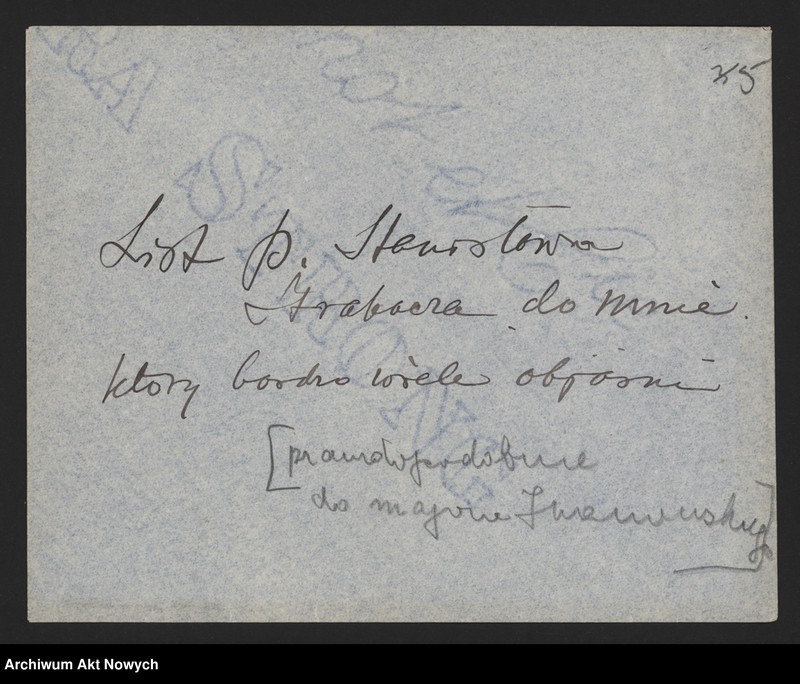 45
List p. Stanisława
Grabacza do mnie.
który bardzo wiele objaśni
[prawdopodobnie
do majora Iwanowskiego]
Archiwum Akt Nowych